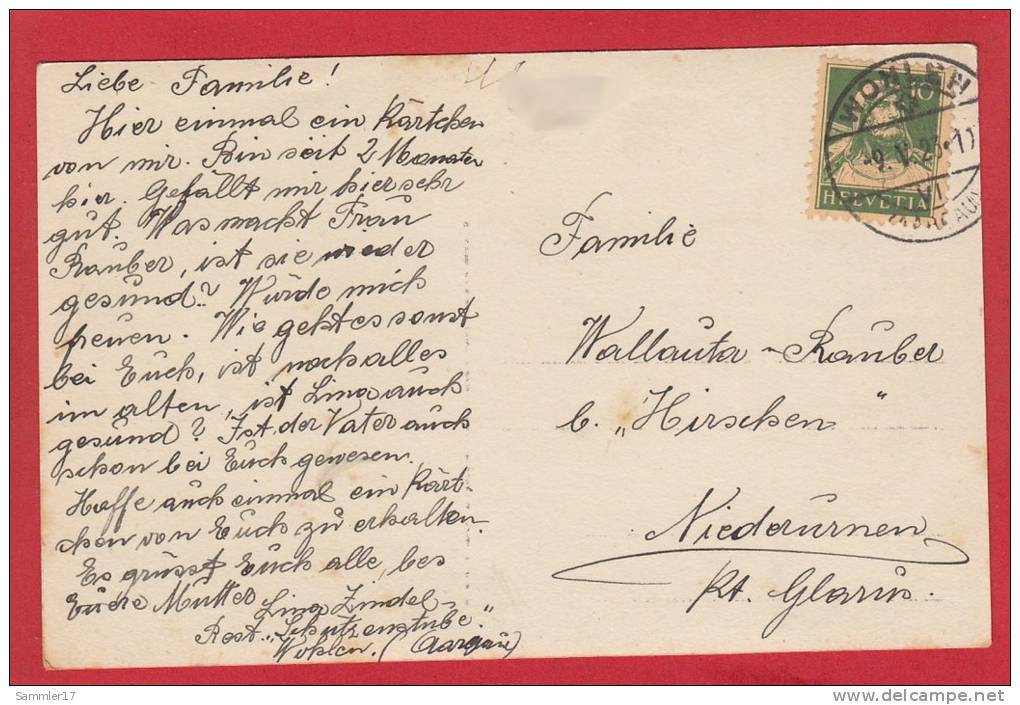 Liebe Familie!
Hier einmal ein Kärtchen
von mir. Bin seit 2 Monaten
hier. Gefällt mir hier sehr
gut. Was macht Frau
Rauber, ist sie wieder
gesund? Würde mich
freuen. Wie geht es sonst
bei Euch, ist noch alles
im alten, ist Lina auch
gesund? Ist der Vater auch
schon bei Euch gewesen.
Hoffe auch einmal ein Kärt-
chen von Euch zu erhalten.
Es grüsst Euch alle, bes
Eure Mutter
Lina Zindel
Rest. „Schützenstube."
Wohlen. (Aargau)
WOHLEN
10
HELVETIA
(AARGAU)
Familie
Wallauta-Rauber
b. „Hirschen"
Niederurnen
Kt. Glarus.
Sammler17
delcampe.net